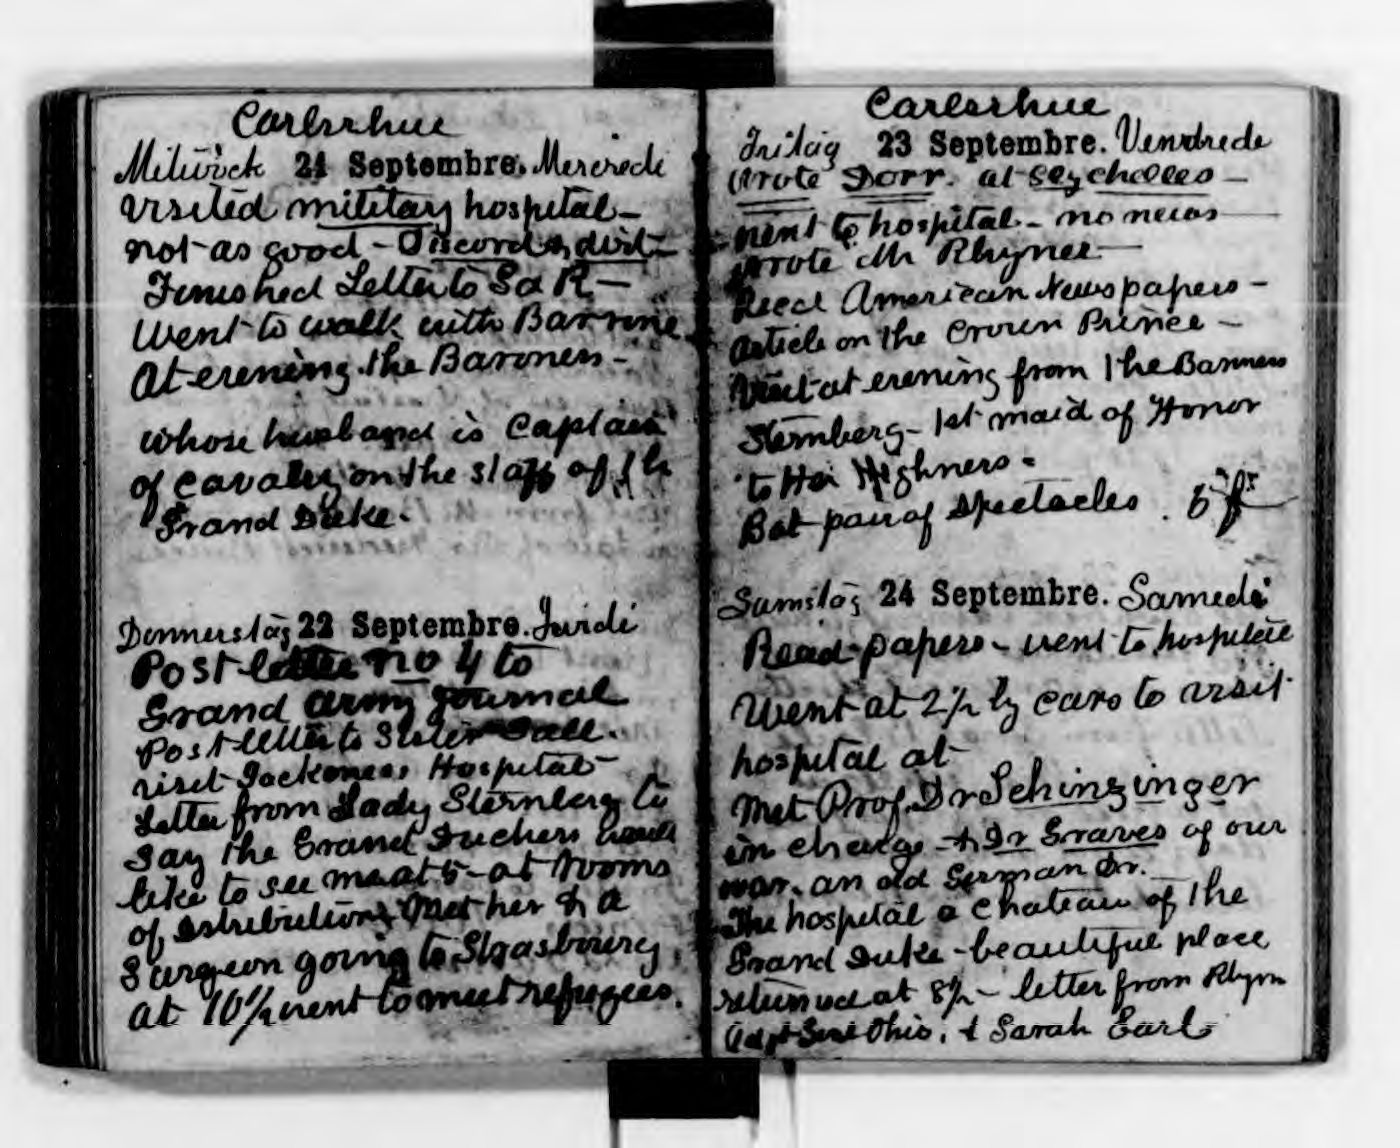 Carlsrhue
Mitwoch 21 Septembre. Mercrede
visited military hospital –
not as good – Discord & dirt –
Finished Letter to S & R –
Went to walk with Barrone
At evening the Baroness –
whose husband is Captain
of cavalry on the staff of the
Grand Duke.
Donnerstag 22 Septembre. Juridi
Post letter no 4 to
Grand Army Journal
Post letter to Sister
visit Hospital
Letter from Lady Sternberg to
say the Grand Duchess would
like to see me at 5 – at rooms
of distribution, Met her & a
Surgeon going to Strasbourg,
at 10 1/2 went to meet refugees.
Carlsrhue
Fritag 23 Septembre. Vendrede
Wrote Dorr. at Seychelles –
went to hospital – no news –
wrote Mr Rhyner –
Recd American Newspapers –
Article on the Crown Prince –
Visit at evening from the Baroness
Sternberg – 1st maid of Honor
to Her Highness –
Bot pair of Spectacles. 5 fr
Samstag 24 Septembre. Samedi
Read papers – went to hospital
Went at 2 1/2 by cars to visit
hospital at
Met Prof. Dr Schinzinger
in charge & Dr Graves of our
war. an old German Dr.
The hospital a chateau of the
Grand Duke – beautiful place
returned at 8 1/2 – letter from Rhyn
Ohio, & Sarah Earl